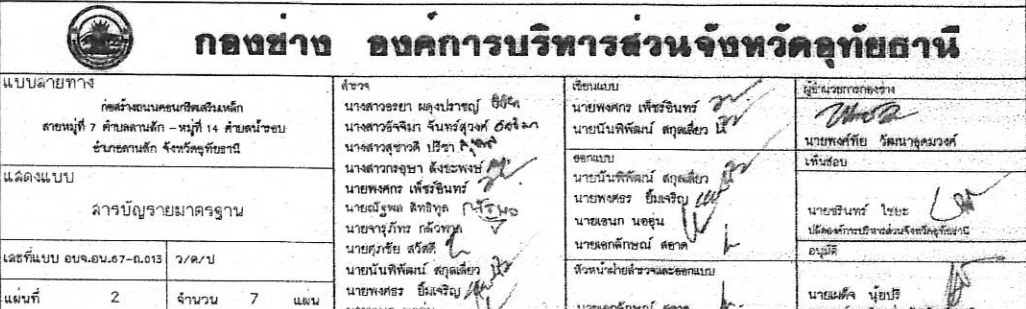 กองช่าง องค์การบริหารส่วนจังหวัดอุทัยธานี
แบบสายทาง
ก่อสร้างถนนคอนกรีตเสริมเหล็ก
สายหมู่ที่ 7 ตำบลลานสัก - หมู่ที่ 14 ตำบลน้ำรอบ
อำเภอลานสัก จังหวัดอุทัยธานี
แสดงแบบ
สารบัญรายมาตรฐาน
เลขที่แบบ อบจ.อน.67-ถ.013
ว/ด/ป
แผ่นที่ 2 จำนวน 7 แผ่น
สำรวจ
นางสาวอรยา ผดุงปราชญ์
นางสาวอัจจิมา จันทร์สุวงศ์
นางสาวสุชาวดี ปรีชา
นางสาวกรอุษา
นายพงศกร เพ็ชรอินทร์
นายณัฐพล สิทธิทูล
นายจารุภัทร
นายศุภชัย สวัสดี
นายนันพิพัฒน์ สกุลเสี่ยว
นายพงศธร ยิ้มเจริญ
เขียนแบบ
นายพงศกร เพ็ชรอินทร์
นายนันพิพัฒน์ สกุลเสี่ยว
ออกแบบ
นายนันพิพัฒน์ สกุลเสี่ยว
นายพงศธร ยิ้มเจริญ
นายเอนก นออุ่น
นายเอกลักษณ์ สอาด
หัวหน้าฝ่ายสำรวจและออกแบบ
นายเอกลักษณ์ สอาด
ผู้อำนวยการกองช่าง
นายพงศ์ทัย วัฒนาอุดมวงศ์
เห็นชอบ
นายชรินทร์ ไชยะ
ปลัดองค์การบริหารส่วนจังหวัดอุทัยธานี
อนุมัติ
นายเผด็จ นุ้ยปรี